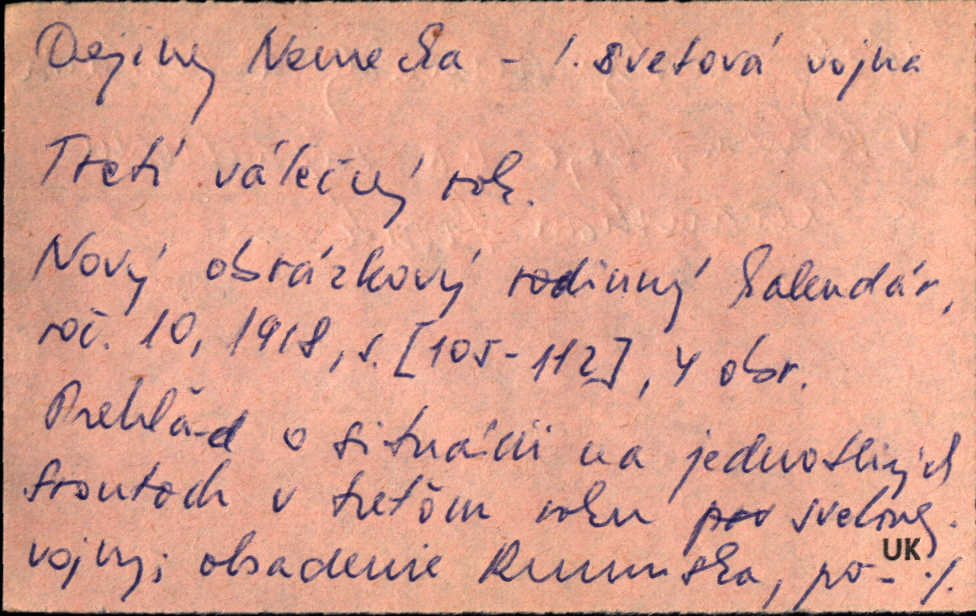 Dejiny Nemecka - 1. svetová vojna
Tretí válečný rok.
Nový obrázkový rodinný kalendár,
roč. 10, 1918, s. [105-112], 4 obr.
Prehľad o situácii na jednotlivých
frontoch v treťom roku prv svetovej
vojny; obsadenie Rumunska, po- ./.
UK